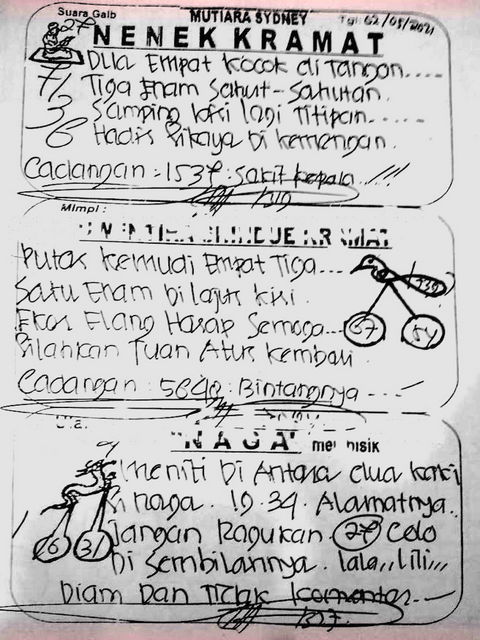 Suara Gaib MUTIARA SYDNEY Tgl 02/05/2021
NENEK KRAMAT
Dua Empat kocok di Tangan....
Tiga Enam Sahut-Sahutan.
Samping kiri lagi Titipan......
Hadis Sikaya Di kemengan.
Cadangan: 1537: Sakit kepala..!!!
Mimpi:
KRAMAT
Putar Kemudi Empat Tiga...
Satu Enam Di lajur kiri.
Ekor Elang Harap Semoga...
Silahkan Tuan Atur Kembali.
57 54
Cadangan: 5640: Bintangnya
"NAGA"
Meniti Di Antara dua kaki
Si naga. 19.34. Alamatnya..
Jangan Ragukan 27 Colo
Di Sembilannya. lala,, lili,,,
16 31
Diam Dan Tidak Komentar